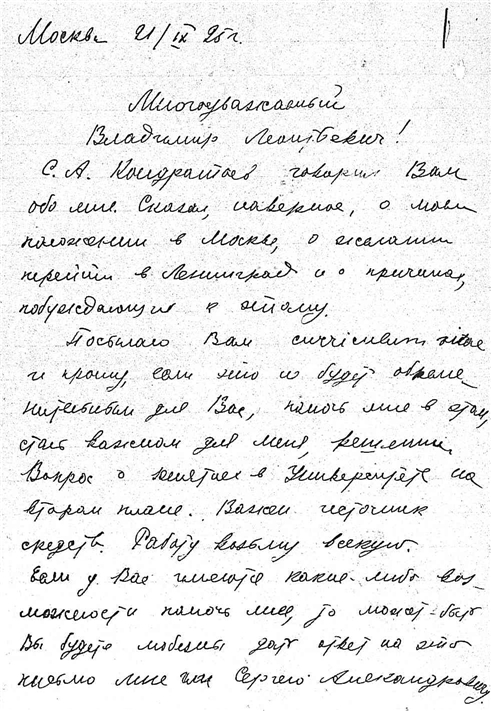 Москва 21/IX 25 г.
Многоуважаемый
Владимир Леонтьевич!
С. А. Кондратьев говорил Вам
обо мне. Сказал, наверное, о моем
положении в Москве, о желании
перейти в Ленинград и о причинах,
побуждающих к этому.
Посылаю Вам curriculum vitae
и прошу, если это не будет обреме-
нительным для Вас, помочь мне в этом,
столь важном для меня, решении.
Вопрос о занятиях в Университете на
втором плане. Важен источник
средств. Работу возьму всякую.
Если у Вас имеются какие-либо воз-
можности помочь мне, то может быть
Вы будете любезны дать ответ на это
письмо мне или Сергею Александровичу.